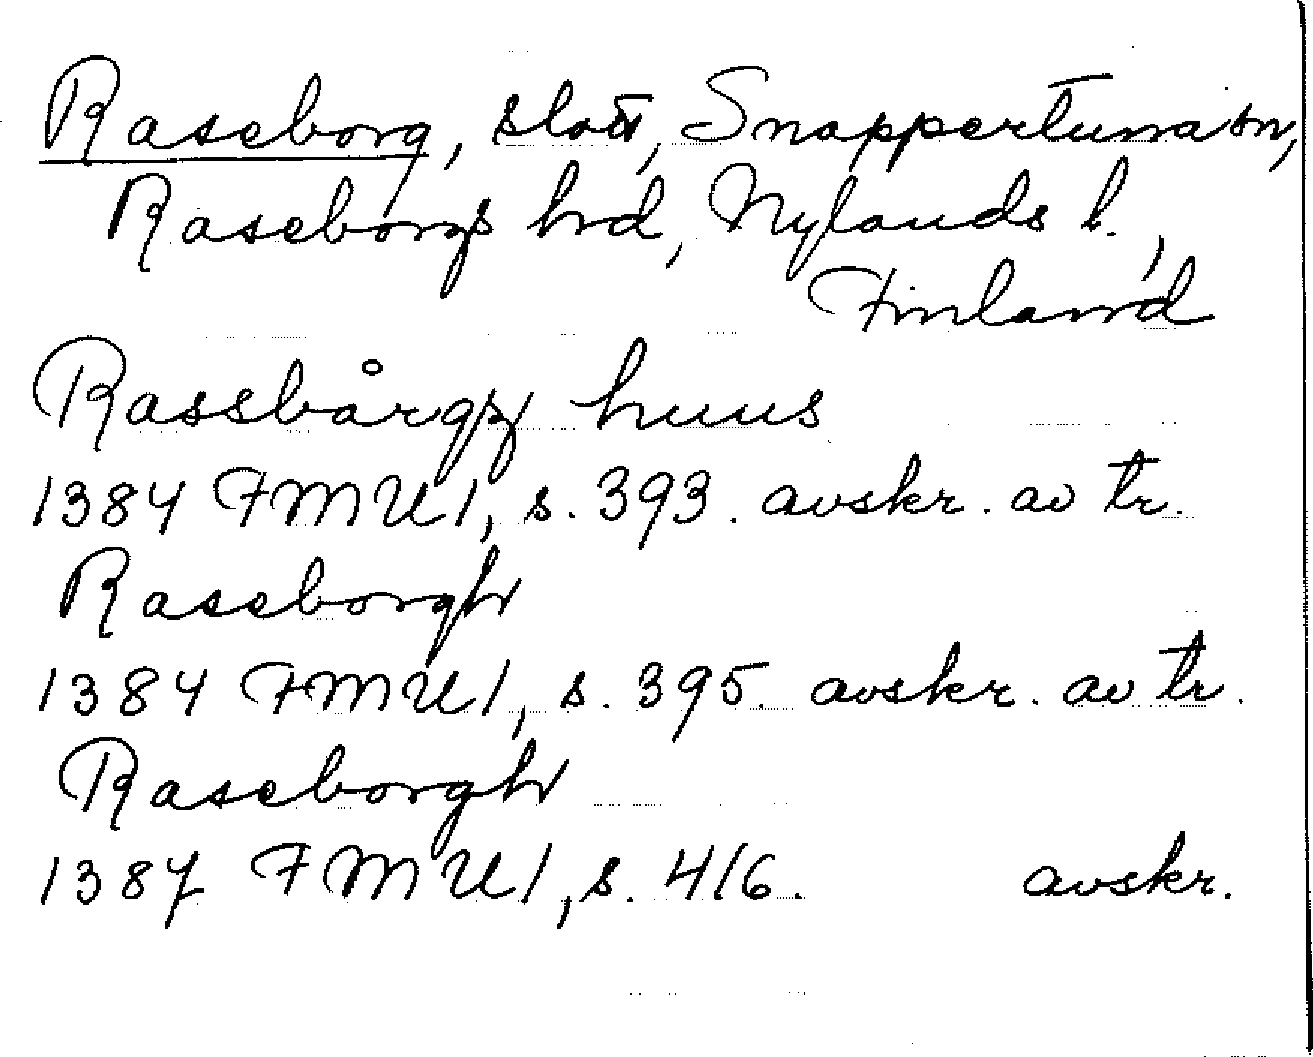 Raseborg, slott, Snappertuna sn,
Raseborgs hrd, Nylands l.,
Finland
Rassbårgz huus
1384 FMU 1, s. 393. avskr. av tr.
Raseborgh
1384 FMU 1, s. 395. avskr. av tr.
Raseborgh
1387 FMU 1, s. 416. avskr.